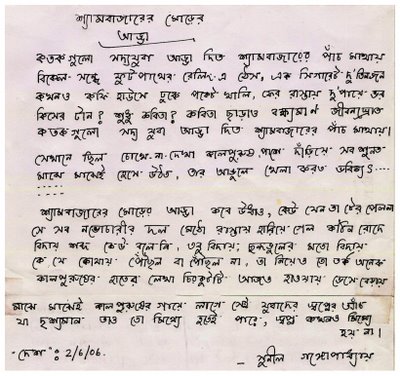 শ্যামবাজারের মোড়ের
আড্ডা
কতকগুলো সদ্যযুবা আড্ডা দিত শ্যামবাজারের পাঁচ মাথায়
বিকেল-সন্ধে ফুটপাথের রেলিং-এ ঠেস, এক সিগারেট দু'তিনজনে
কখনও কফি হাউসে ঢুকে পকেট খালি, ফের রাস্তায় দু'পায়ে ভর
কিসের টান? শুধু কবিতা? কবিতা ছাড়াও বহমান জীবনস্রোত
কতকগুলো সদ্য যুবা আড্ডা দিত শ্যামবাজারের পাঁচ মাথায়।
সেখানে ছিল চোখে-না-দেখা কালপুরুষ, পাশে দাঁড়িয়ে সব শুনত
মাঝে মাঝেই হেসে উঠত, তার আঙুলে খেলা করত ভবিষ্যৎ....
শ্যামবাজারের মোড়ের আড্ডা কবে উধাও, কেউ যেন তা টের পেল না
সে সব নভোচারীর দল মেঠো রাস্তায় হারিয়ে গেল কঠিন রোদে
বিদায় শব্দ কেউ বলেনি, তবু বিদায়,
কে যে কোথায় পৌঁছল বা পৌঁছল না, তা নিয়েও তো তর্ক অনেক
কালপুরুষের হাতের লেখা চিরকুটটি আজও হাওয়ায় ভেসে বেড়ায়
মাঝে মাঝেই কালপুরুষের গায়ে লাগে সেই যুবাদের স্বপ্নের আঁচ
যা দৃশ্যমান তাও তো মিথ্যে হতেই পারে, স্বপ্ন কখনও মিথ্যে
হয় না।
'দেশ': 2/6/06.
- সুনীল গঙ্গোপাধ্যায়